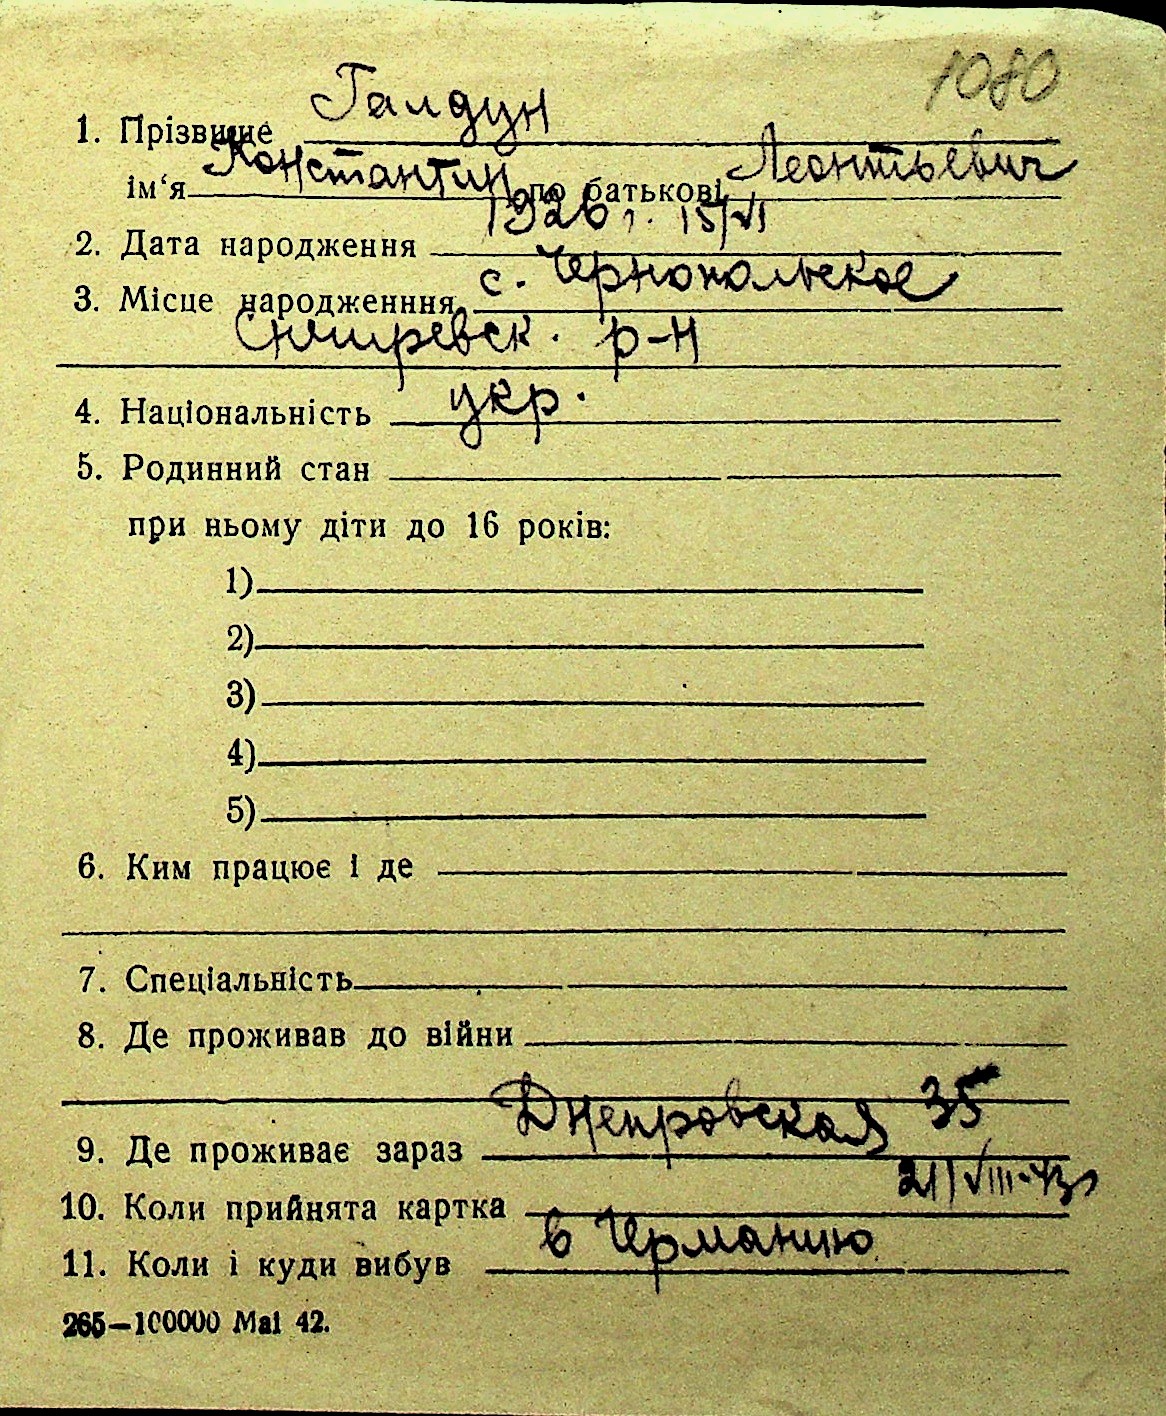 1080
1. Прізвище Галдун
ім‘я Константин по батькові Леонтьевич
2. Дата народження 1926 г. 15/VI
3. Місце народженння с. Чернопольское
р-н
4. Національність укр.
5. Родинний стан
при ньому діти до 16 років:
1)
2)
3)
4)
5)
6. Ким працює і де
7. Спеціальність
8. Де проживав до війни
9. Де проживає зараз Днепровская 35
10. Коли прийнята картка 21/VIII-43г
11. Коли і куди вибув в Германию
265—100000 Mai 42.